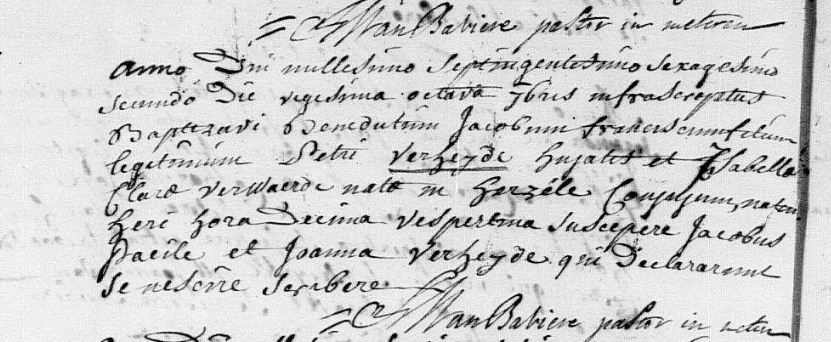 Van Babiere pastor in meteren
anno Dni millesimo septingentesimo sexagesimo
secundo Die vigesima octava 7bris infrascriptus
Baptizavi Benedictum Jacobum franciscum filium
legitimum Petri Verheyde hujatis et Isabella
Claræ Verwaerde natæ in herzéle Conjugum, natum
heri hora Decima vespertina suscepere Jacobus
et Joanna Verheyde qui Declararunt
se nescire scribere
Van Babiere pastor in meter